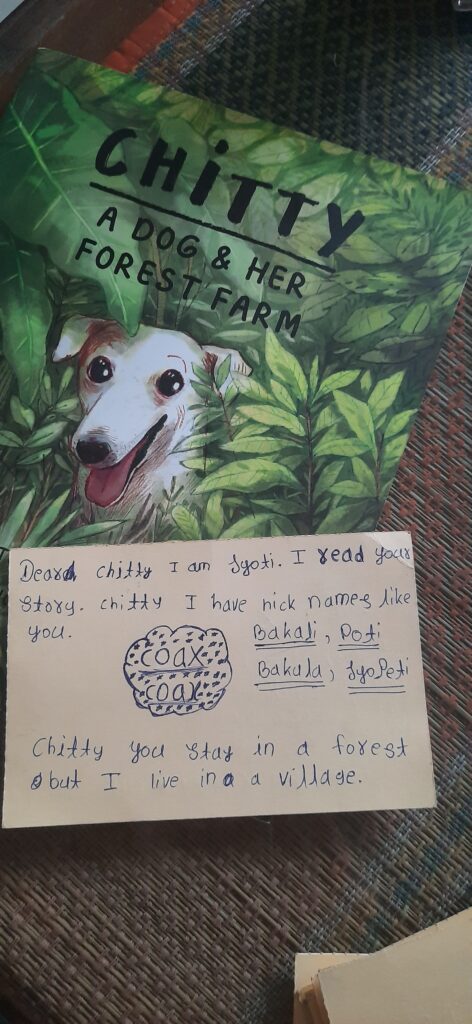 CHITTY
A DOG & HER
FOREST FARM
Dear chitty I am Jyoti. I read your
story. chitty I have nick names like
you.
Bakaji, Poti
Bakula, JyoPeti
coax
coax
Chitty you stay in a forest
but I live in a village.